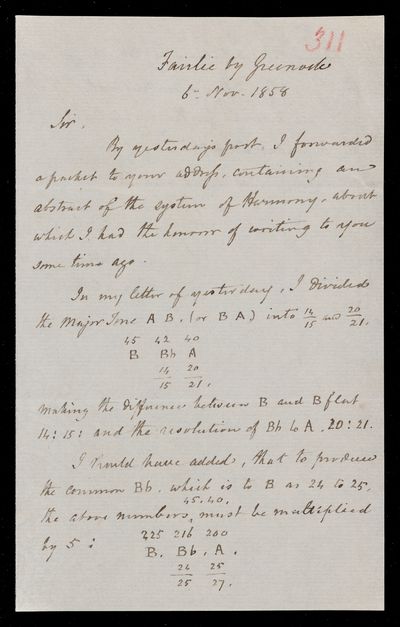 311
Fairlie by Greenock
6th Nov. 1858
Sir,
By yesterday's post, I forwarded
a packet to your address, containing an
abstract of the system of Harmony, about
which I had the honour of writing to you
some time ago.
In my letter of yesterday, I divided
the Major Tone A B, (or B A) into 14/15 and 20/21,
45 42 40
B Bb A
14 20
15 21,
making the difference between B and B flat
14:15: and the resolution of Bb to A, 20:21.
I should have added, that to produce
the common Bb, which is to B as 24 to 25,
45.40,
the above numbers, must be multiplied
by 5:
225 216 200
B. Bb. A.
24 25
25 27.